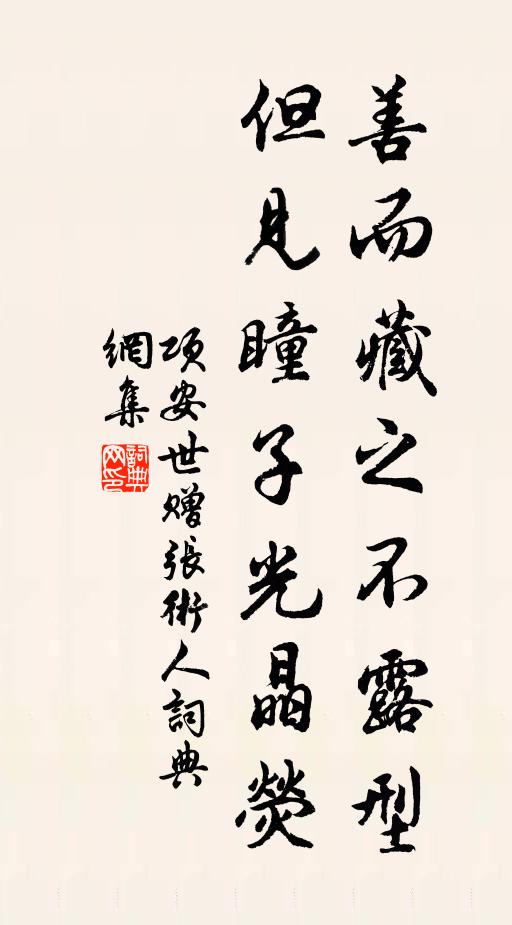 善而藏之不露型
但見瞳子光晶熒
項安世贈張術人詞典
網集
詞典網印